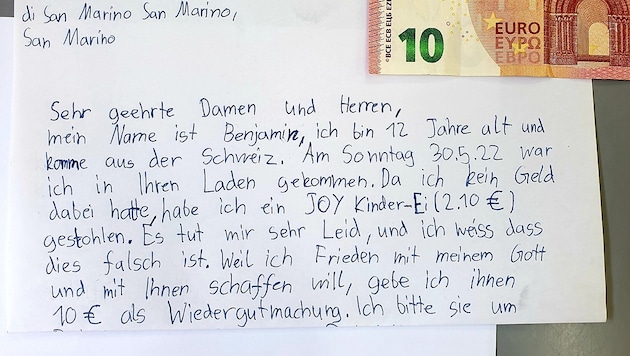 di San Marino San Marino,
San Marino
©BCE ECB ЕЦБ
10
EURO
ΕΥΡΩ
ЕВРО
Sehr geehrte Damen und Herren,
mein Name ist Benjamin, ich bin 12 Jahre alt und
komme aus der Schweiz. Am Sonntag 30.5.22 war
ich in Ihren Laden gekommen. Da ich kein Geld
dabei hatte, habe ich ein JOY Kinder-Ei (2.10 €)
gestohlen. Es tut mir sehr Leid, und ich weiss dass
dies falsch ist. Weil ich Frieden mit meinem Gott
und mit Ihnen schaffen will, gebe ich ihnen
10 € als Wiedergutmachung. Ich bitte sie um